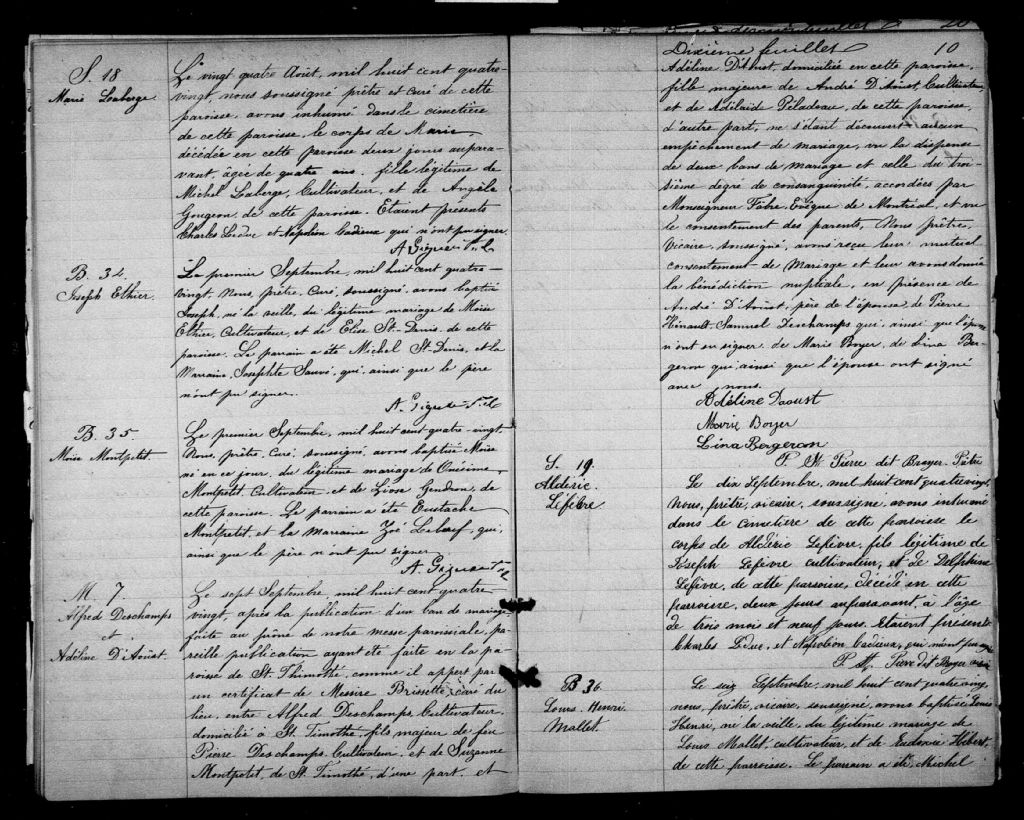 S. 18
Marie Laberge
Le vingt quatre Août, mil huit cent quatre-
vingt, nous soussigné prêtre et curé de cette
paroisse, avons inhumé dans le cimetière
de cette paroisse, le corps de Marie,
décédée en cette paroisse deux jours aupara-
vant, agée de quatre ans, fille légitime de
Michel Laberge, Cultivateur, et de Angèle
Gougeon, de cette paroisse. Etaient présents
Charles Leduc et Napoléon Cadieux qui n'ont pu signer.
B. 34.
Joseph Ethier.
Le premier Septembre, mil huit cent quatre-
vingt, Nous, prêtre, Curé, soussigné, avons baptisé
Joseph, né la veille, du légitime mariage de Moïse
Ethier, Cultivateur, et de Elise St-Denis, de cette
paroisse. Le parrain a été Michel St-Denis, et la
Marraine, Josephte Sauvé, qui, ainsi que le père
n'ont pu signer.
B. 35.
Moïse Montpetit.
Le premier Septembre, mil huit cent quatre-vingt,
Nous, prêtre, Curé, soussigné, avons baptisé Moïse
né en ce jour, du légitime mariage de Onésime
Montpetit, Cultivateur, et de Gendron, de
cette paroisse. Le parrain a été Eustache
Montpetit, et la Marraine Zoé Leboeuf, qui,
ainsi que le père n'ont pu signer.
M. 7.
Alfred Deschamps
et
Adéline D'Aoüst.
Le sept Septembre, mil huit cent quatre
vingt, après la publication d'un ban de mariage
faite au prône de notre messe paroissiale, pa-
reille publication ayant été faite en la pa-
roisse de St. Thimothé, comme il appert par
un certificat de Messire Brissette, curé du
lieu, entre Alfred Deschamps, Cultivateur,
domicilié à St. Timothé, fils majeur de feu
Pierre Deschamps, Cultivateur, et de Suzanne
Montpetit, de St. Timothé, d'une part, et
Dixième feuillet 10
Adéline D'Aoust, domiciliée en cette paroisse,
fille majeure de André D'Aoust, Cultivateur
et de Adélaïd Péladeau, de cette paroisse,
d'autre part, ne s'étant découvert aucun
empêchement de mariage, vu la dispense
de deux bans de mariage et celle du troi-
sième dégré de consanguinité, accordées par
Monseigneur Fabre, Evêque de Montréal, et vu
le consentement des parents, Nous prêtre,
Vicaire, soussigné, avons reçu leur mutuel
consentement de Mariage et leur avons donné
la bénédiction nuptiale, en présence de
André D'Aoüst, père de l'épouse, de Pierre
Hénault, Samuel Deschamps qui, ainsi que l'époux
n'ont su signer, de Marie Boyer, de Lina Ber-
geron qui, ainsi que l'épouse ont signé
avec nous.
Adéline Daoust
Marie Boyer
Lina Bergeron
P. St. Pierre dit Boyer. Ptre
S. 19.
Aldéric
Lefebre
Le dix Septembre, mil huit cent quatre vingt,
Nous, prêtre, vicaire, soussigné, avons inhumé
dans le cimetiere de cette paroisse le
corps de Aldéric Lefèvre, fils légitime de
Joseph Lefèvre cultivateur, et de Delphine
Lefèvre, de cette paroisse, décédé en cette
parroisse, deux jours auparavant, à l'âge
de trois mois et neuf jours. Etaient présents
Charles Leduc, et Napoléon Cadieux, qui n'ont pu
P. St. Pierre dit Boyer
B 36.
Louis. Henri
Mallet.
Le seiz Septembre, mil huit cent quatre vingt,
nous, prêtre, vicaire, soussigné, avons baptisé Louis
Henri, né la veille, du légitime mariage de
Louis Mallet, cultivateur, et de Hébert,
de cette parroisse. Le parrain a été Michel